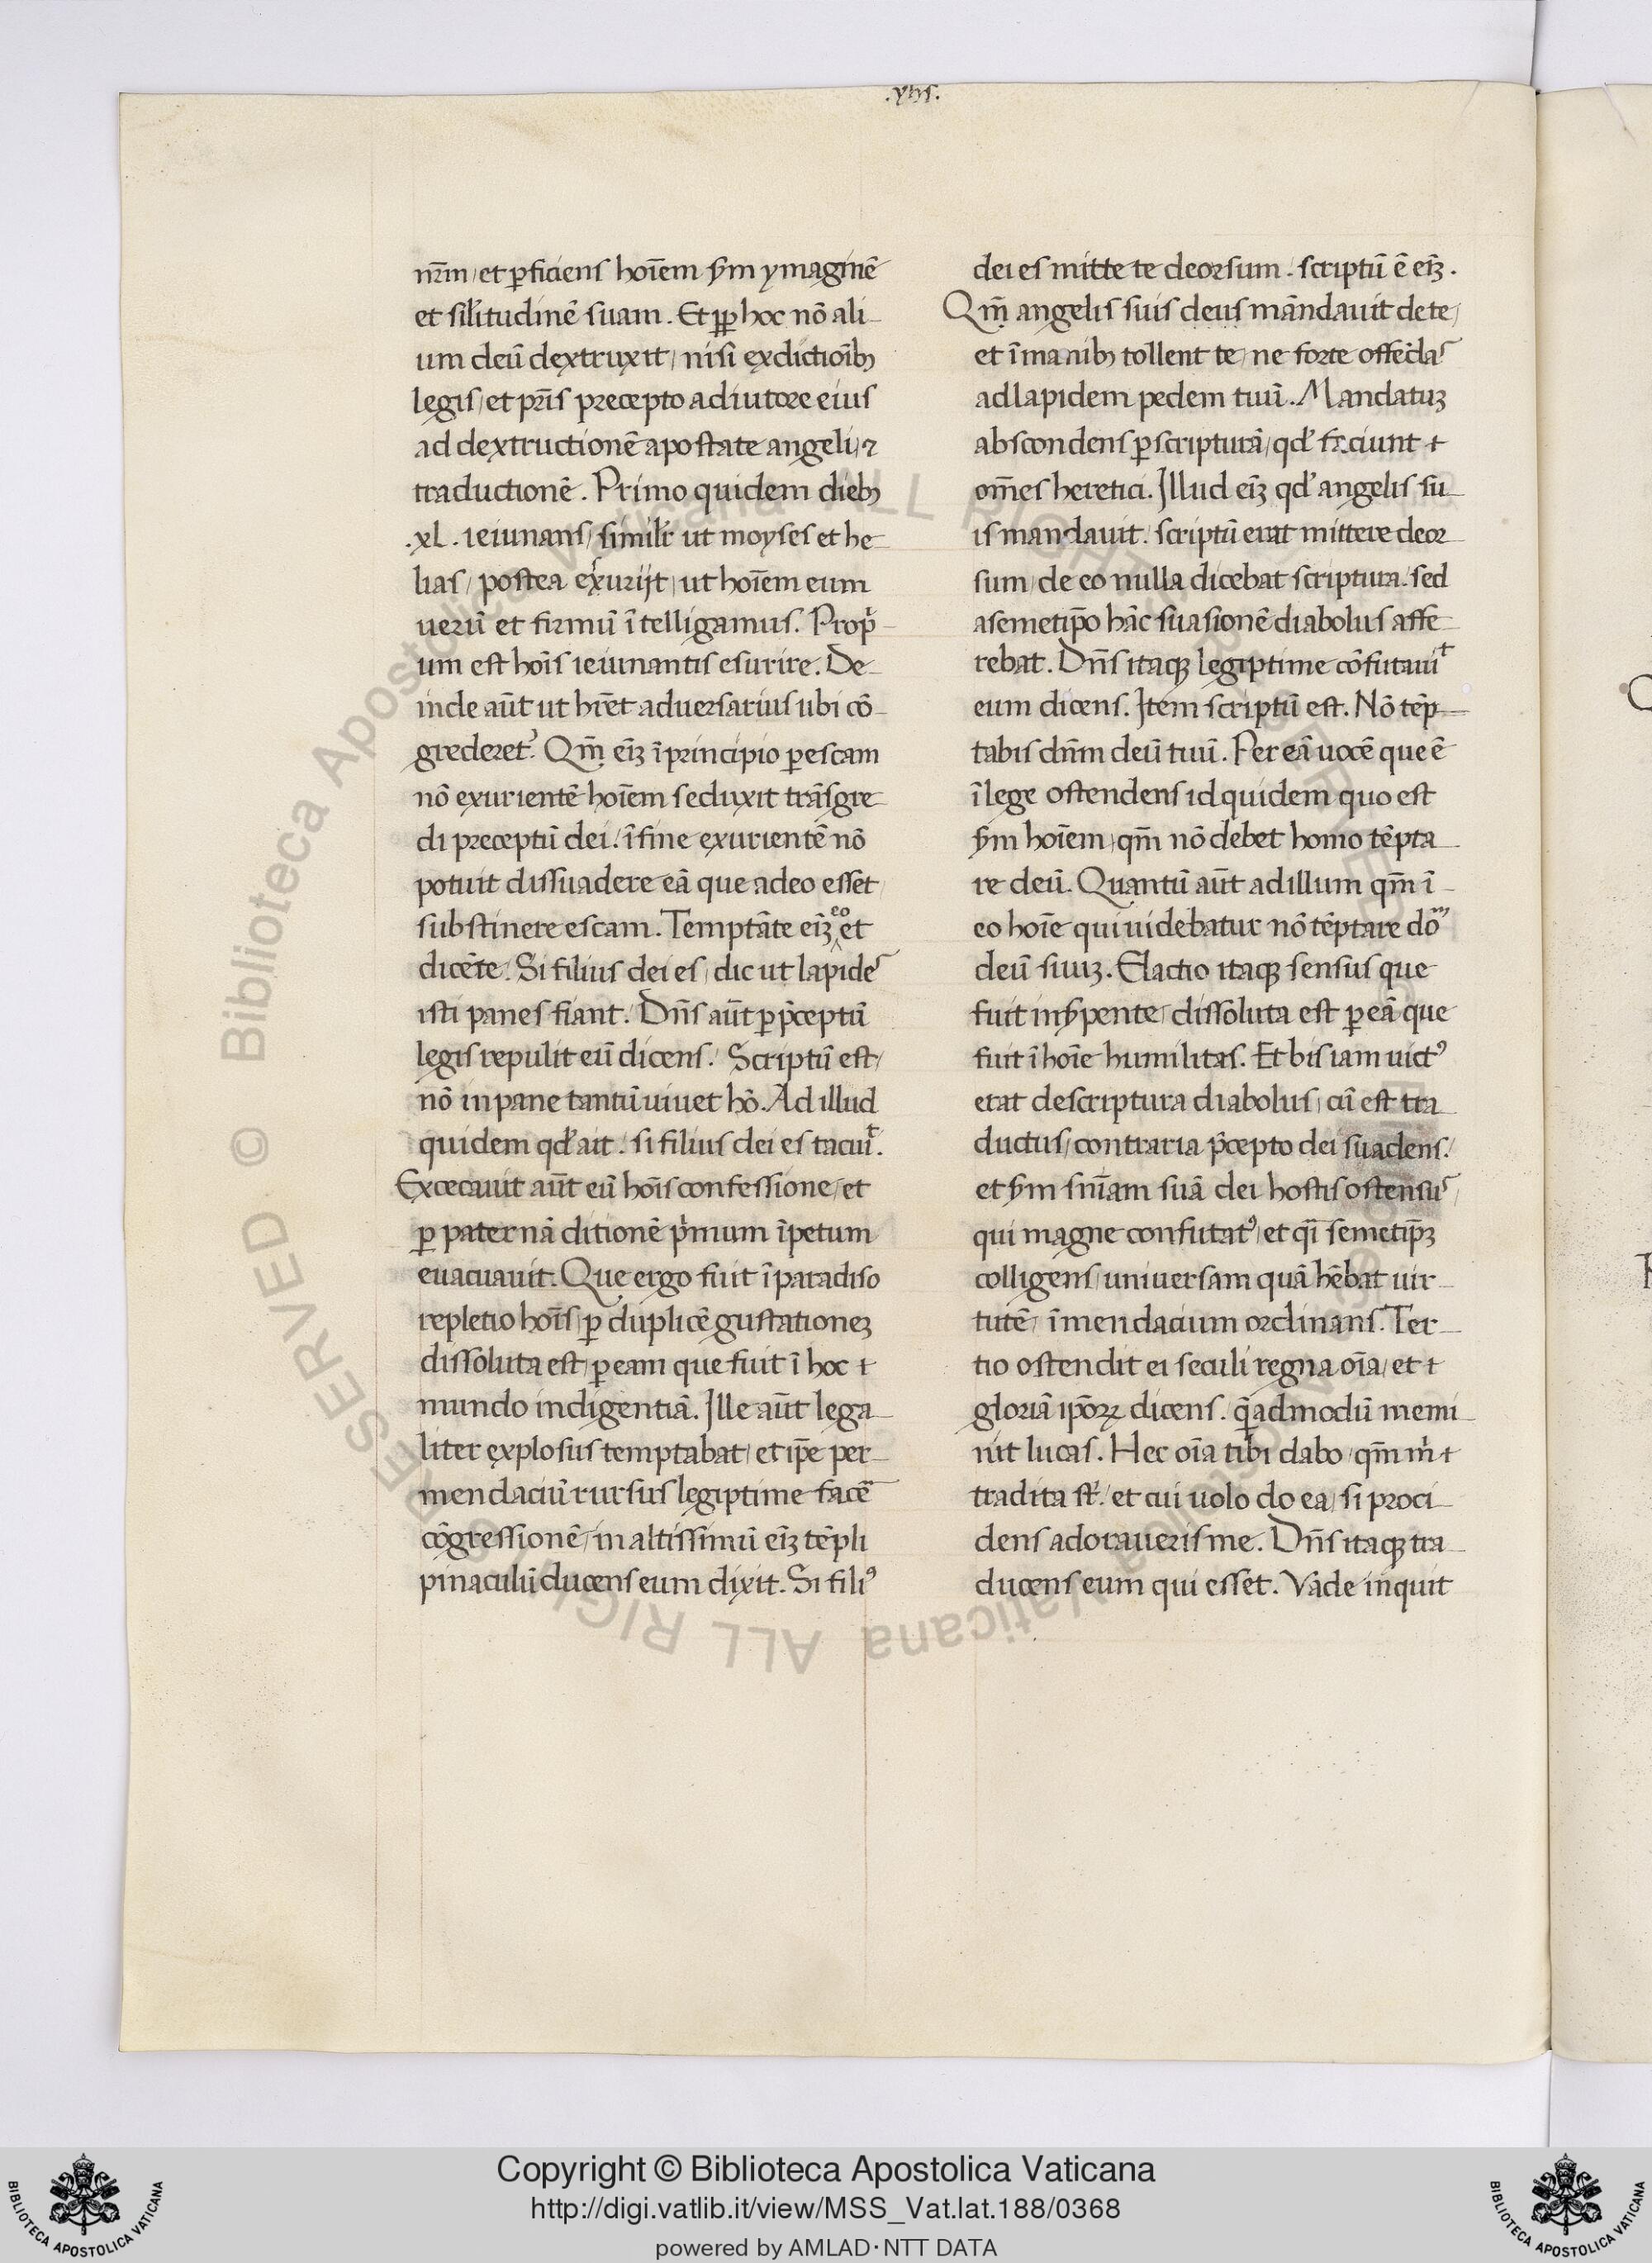 .yhs.
nr̄m, et ꝑficiens hoīem ẜm ymaginē
et sil'itudinē suam. Et ꝓp hoc nō ali–
um deū dextruxit, nisi ex dictioīb;
legis, et pr̄is precepto adiutore eius
ad dextructionē apostate angeli, ⁊
traductionē. Primo quidem dieb;
.xL. ieiunans, simil'r ut moyses et he–
lias, postea exsurijt, ut hoīem eum
uerū et firmū ītelligamus. Propi–
um est hoīs ieiunantis esurire. De–
inde aūt ut hr̄et aduersarius ubi cō–
grederet᾽. Qm̄ eīꝫ īprincipio ꝑ escam
nō exurientē hoīem seduxit trāsgre–
di preceptū dei. īfine exurientē nō
potuit dissuadere eā que a deo esset,
substinere escam. Temptāte eīꝫ eo et
dicēte. Si filius dei es, dic ut lapides
isti panes fiant. Dn̄s aūt ꝑ p̄ceptū
legis repulit eū dicens. Scriptū est,
nō in pane tantū uiuet hō. Ad illud
quidem qd' ait. si filius dei es tacuit.
Excecauit aūt eū hoīs confessione, et
ꝑ paternā ditionē pⁱmum īpetum
euacuauit. Que ergo fuit īparadiso
repletio hoīs, ꝑ duplicē gustationeꝫ
dissoluta est, ꝑ eam que fuit ī hoc ⁊
mundo indigentiā. Ille aūt lega–
liter explosus temptabat, et ip̄e per–
mendaciū rursus legiptime facē
cōgressionē, in altissimū eīꝫ tēpli
pinaculū ducens eum dixit. Si fili᾽
dei es mitte te deorsum. scriptū ē eīꝫ.
Qm̄ angelis suis deus māndauit de te,
et īmanib; tollent te, ne forte offēdas
ad lapidem pedem tuū. Mandatuꝫ
abscondens ꝑ scripturā, qd' faciunt ⁊
om̄es heretici. Illud eīꝫ qd' angelis su–
is mandauit. scriptū erat mittere deor–
sum, de eo nulla dicebat scriptura. sed
a semetip̄o hāc suasionē diabolus affe–
rebat. Dn̄s itaqꝫ legiptime cōfutauit
eum dicens. Item scriptū est. Nō tēp–
tabis dn̄m deū tuū. Per eā uocē que ē
ī lege ostendens id quidem quo est
ẜm hoīem, qm̄ nō debet homo tēpta–
re deū. Quantū aūt ad illum qm̄ ī–
eo hoīe qui uidebatur nō tēptare dō
deū suuꝫ. Elactio itaqꝫ sensus que
fuit in ẜpente, dissoluta est ꝑ eā que
fuit ī hoīe humilitas. Et bis iam uict᾽
erat descriptura diabolus, cū est tra–
ductus, contraria p̄cepto dei suadens.
et ẜm sn̄iam suā dei hostis ostensus,
qui magne confutat᾽, et qⁱ semetip̄ꝫ
colligens, uniuersam quā hēbat uir–
tutē, īmendacium ordinans. Ter–
tio ostendit ei seculi regna oīa, et ⁊
gloriā ipōꝝ dicens. q̄admodū memi–
nit lucas. Hec oīa tibi dabo, qm̄ mⁱ ⁊
tradita st̄. et cui uolo do ea, si proci–
dens adoraueris me. Dn̄s itaqꝫ tra–
ducens eum qui esset. Vāde inquit
Copyright © Biblioteca Apostolica Vaticana
http://digi.vatlib.it/view/MSS_Vat.lat.188/0368
powered by AMLAD·NTT DATA